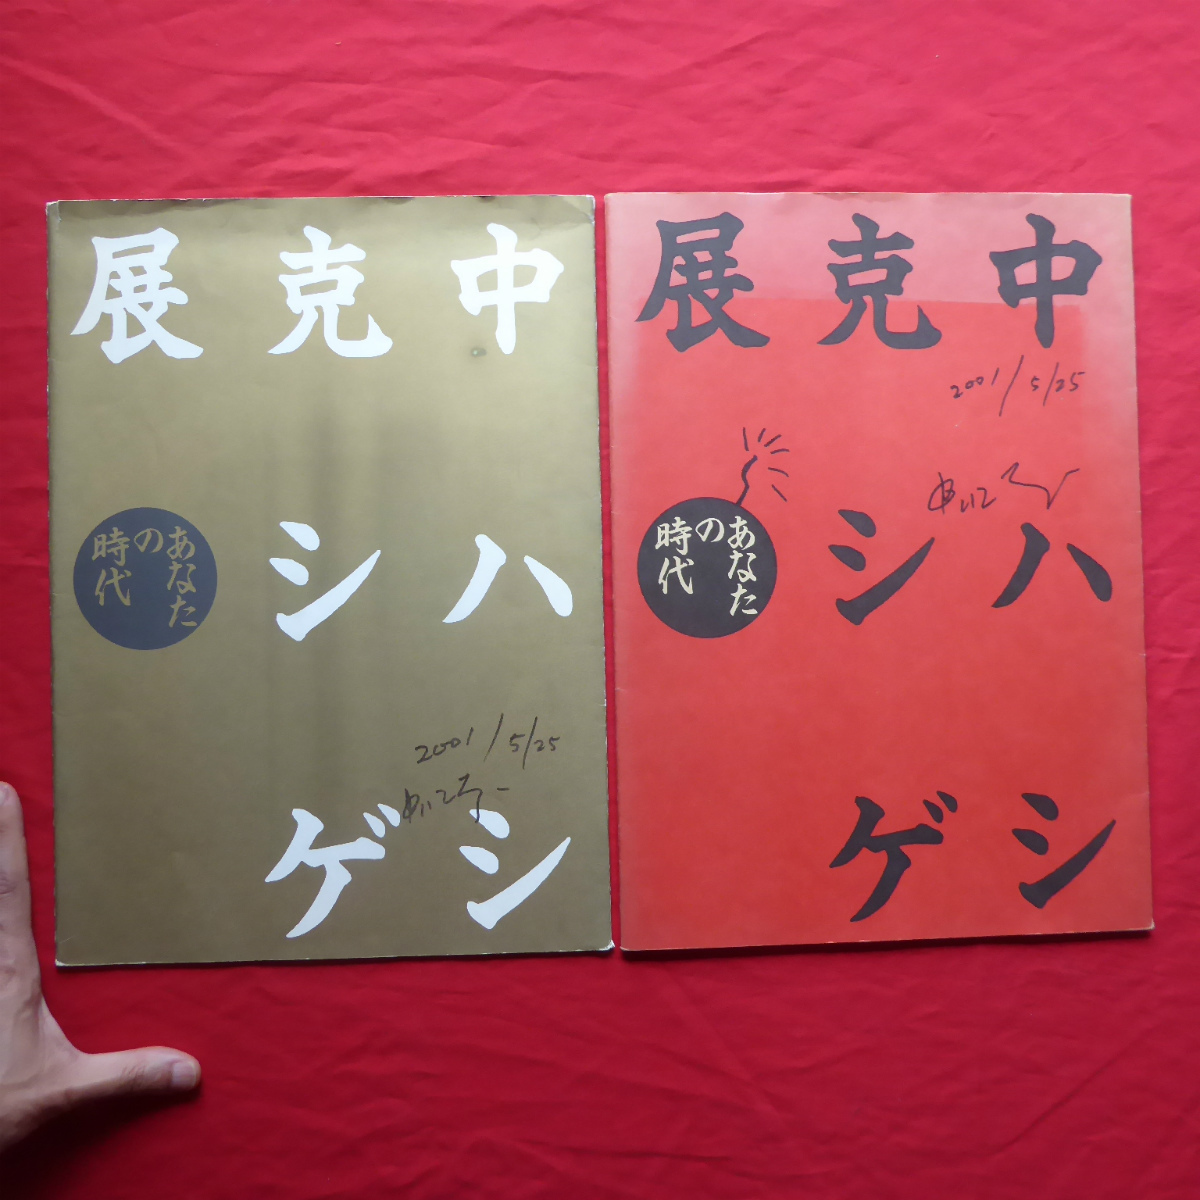 中ハシ
克シゲ
展
あなた
の
時代
2001/5/25
中ハシ
克シゲ
展
あなた
の
時代
2001/5/25